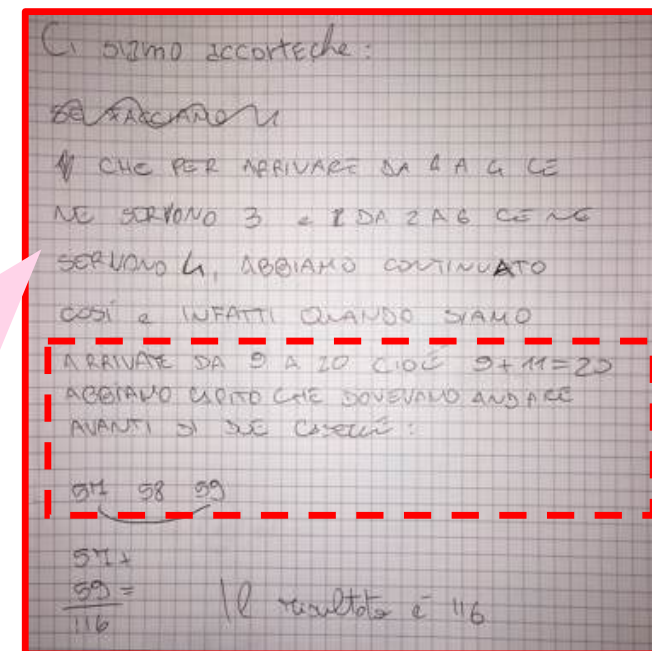 Ci siamo accorte che:
SE FACCIAMO
CHE PER ARRIVARE DA 1 A 4 CE
NE SERVONO 3 e DA 2 A 6 CE NE
SERVONO 4, ABBIAMO CONTINUATO
COSÌ e INFATTI QUANDO SIAMO
ARRIVATE DA 9 A 20 CIOÈ 9+11=20
ABBIAMO CAPITO CHE DOVEVAMO ANDARE
AVANTI DI DUE CASELLE:
57 58 59
57+
59=
116
Il risultato è 116